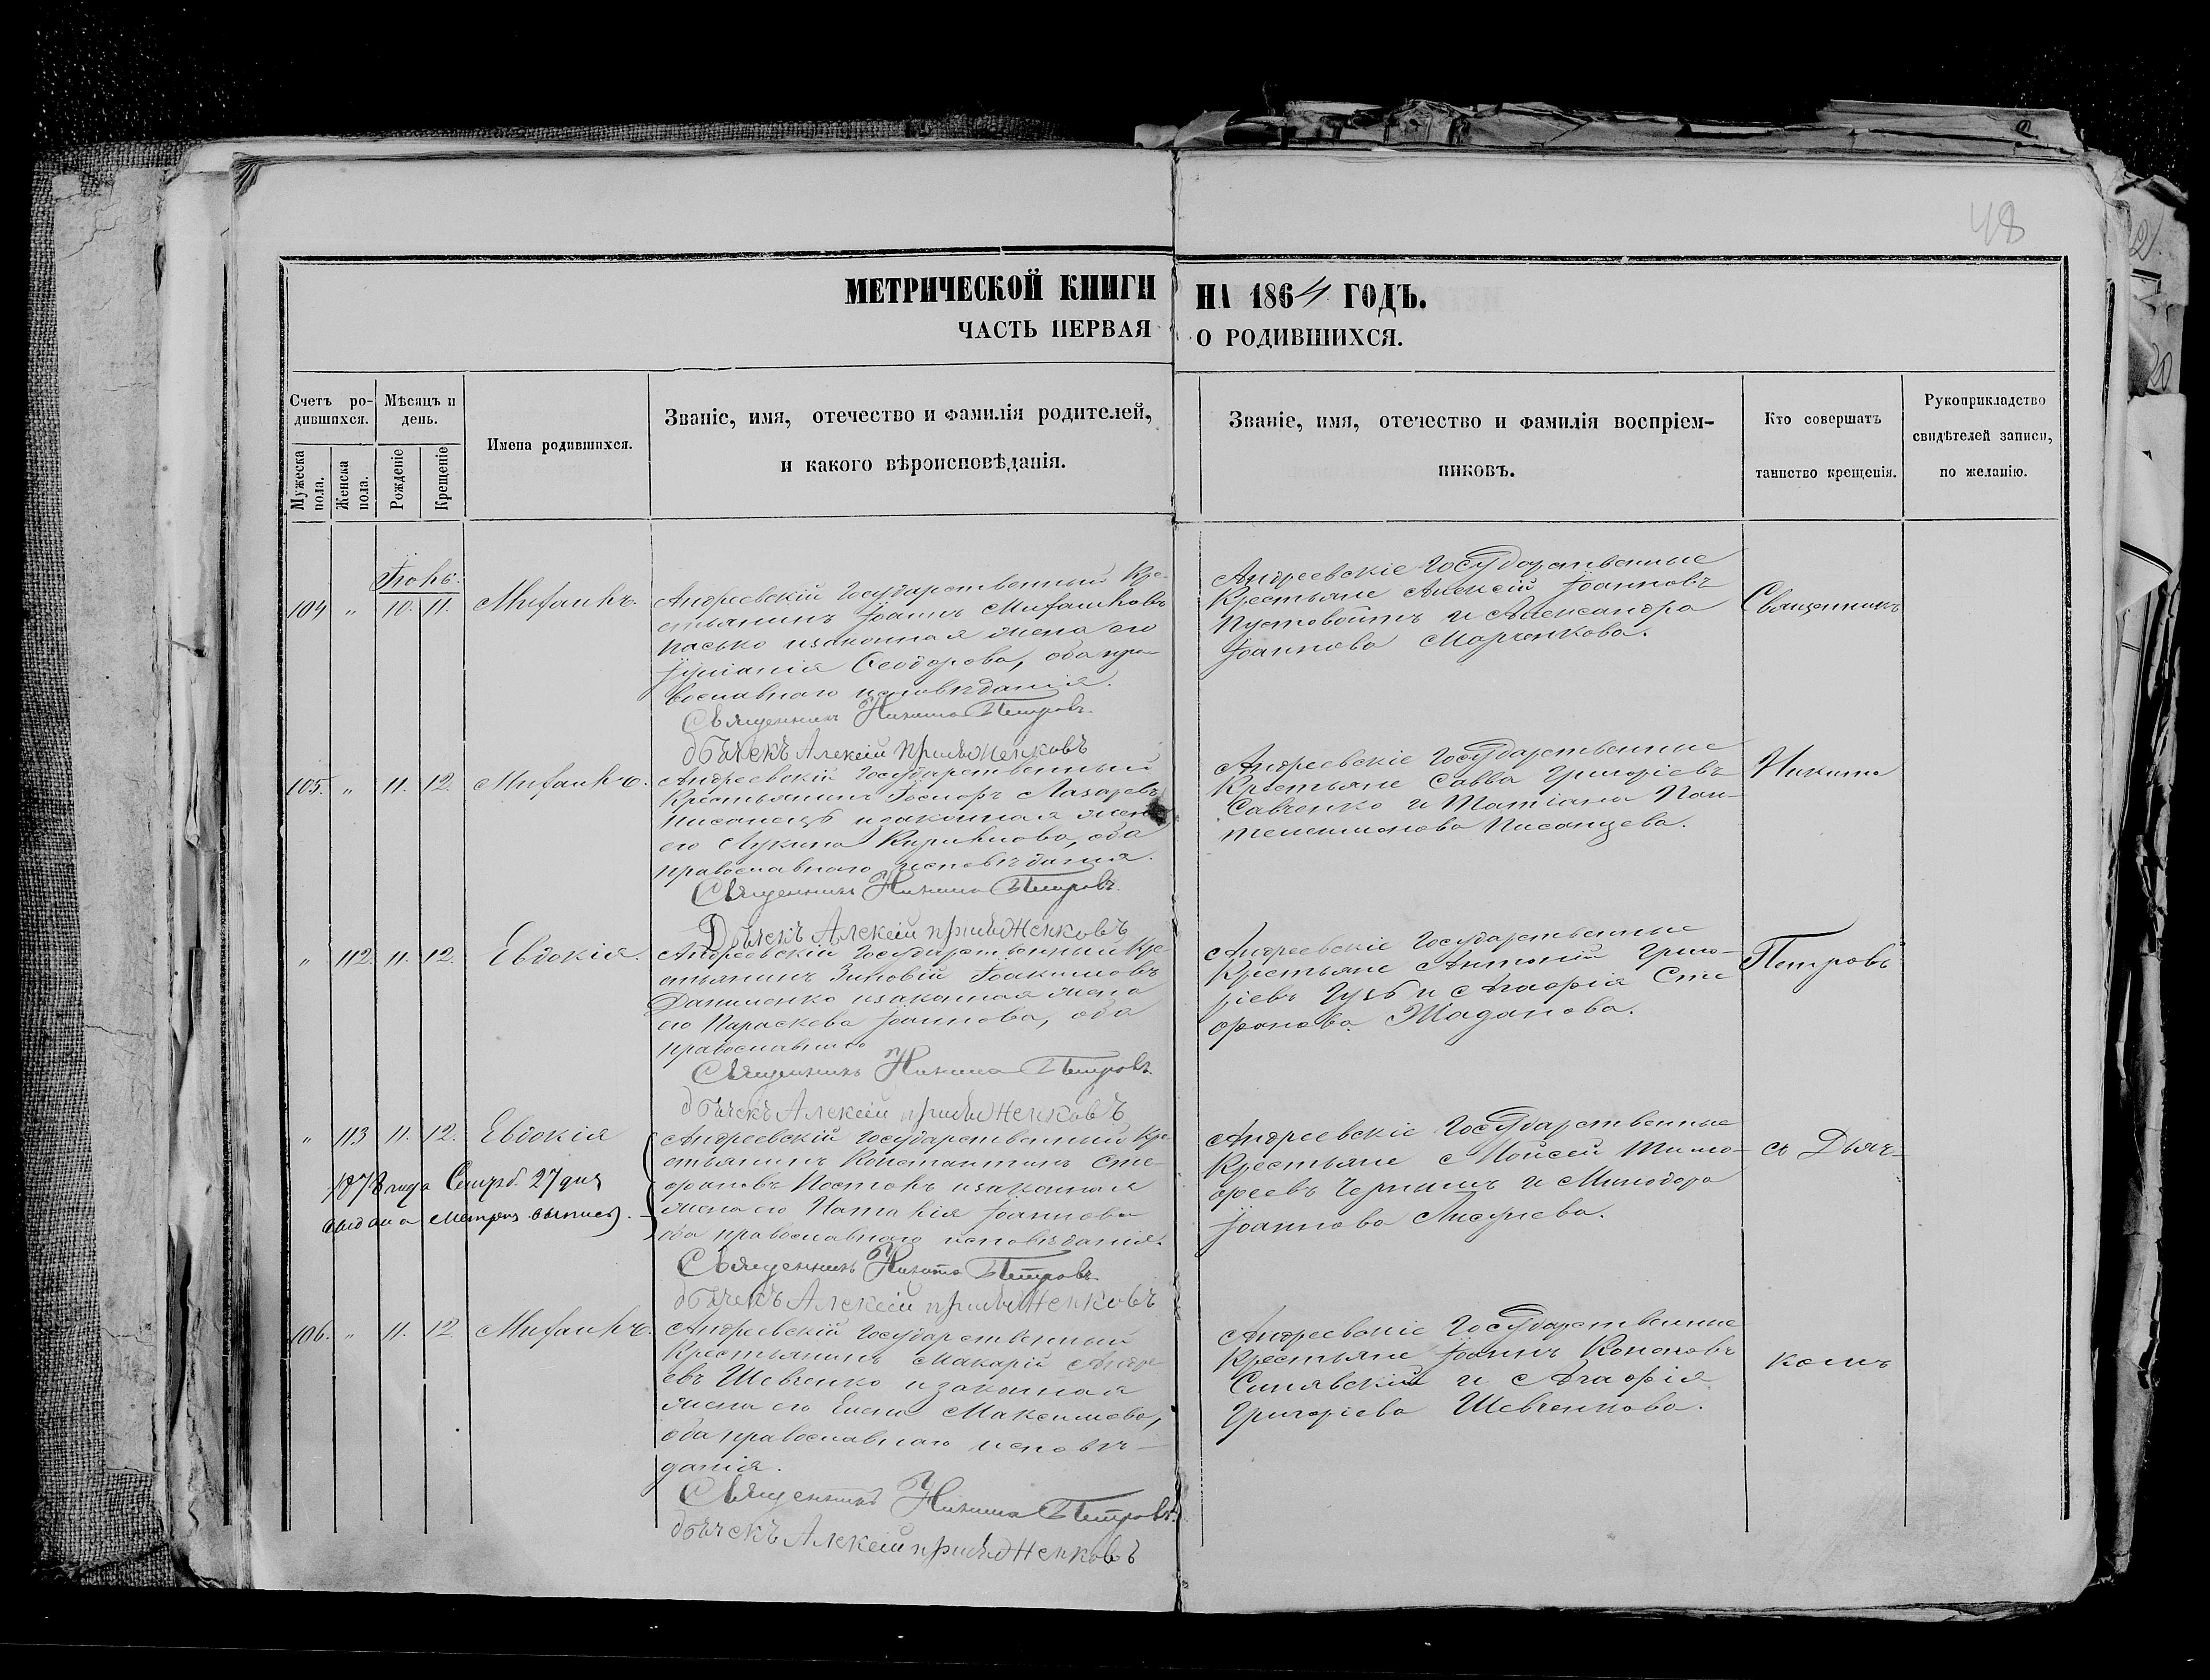 48
МЕТРИЧЕСКОЙ КНИГИ НА 1864 ГОДЪ.
ЧАСТЬ ПЕРВАЯ О РОДИВШИХСЯ.
Счетъ ро-
дившихся.
Мужеска пола.
Женска пола.
Мѣсяцъ и
день.
Рожденіе
Крещеніе
Имена родившихся.
Званіе, имя, отечество и фамилія родителей,
и какого вѣроисповѣданія.
Званіе, имя, отечество и фамилія воспріем-
никовъ.
Кто совершатъ
таинство крещенія.
Рукоприкладство
свидѣтелей записи,
по желанію.
104 " 10. 11. Михаилъ.
Андреевскій Государственный Кре-
стьянинъ Іоаннъ Михаиловъ
Пасько и законная жена его
Іуліанія Ѳеодорова, оба пра-
вославнаго исповѣданія.
Священникъ Никита Петровъ
дьячекъ Алексій
Андреевскіе Государственные
Крестьяне Алексій Іоанновъ
Пустовойтъ и Александра
Іоаннова Марченкова.
Священникъ
105. " 11. 12. Михаилъ.
Андреевскій Государственный
Крестьянинъ Іосифъ Лазаревъ
Писанецъ и законная жена
его Кирилова, оба
православнаго исповѣданія.
Священникъ Никита Петровъ.
Дьячекъ Алексій
Андреевскіе Государственные
Крестьяне Савва Григоріевъ
Савченко и Татіана Пан-
телеимонова Писанцева.
Никита
" 112. 11. 12. Евдокія.
Андреевскій Государственный Кре
стьянинъ Зиновій Іоакимовъ
Даниленко и законная жена
его Параскева Іоаннова, оба
православнаго
Священникъ Никита Петровъ.
дьячекъ Алексій
Андреевскіе Государственные
Крестьяне Антоній Григо-
ріевъ и Агафія Сте
фанова Жаданова.
Петровъ
" 113 11. 12. Евдокія
1878 года 27 дня
выдана выпись.
Андреевскій Государственный Кре
стьянинъ Константинъ Сте-
фановъ и законная
жена его Наталія Іоаннова
оба православнаго исповѣданія.
Священникъ Никита Петровъ.
дьячекъ Алексій
Андреевскіе Государственные
Крестьяне Мойсей Тимо-
феевъ и Минодора
Іоаннова
съ Дьяч-
106. " 11. 12. Михаилъ.
Андреевскій Государственный
Крестьянинъ Макарій Андре
евъ Шевченко и законная
жена его Елена Максимова,
оба православнаго исповѣ-
данія.
Священникъ Никита Петровъ.
дьячекъ Алексій
Андреевскіе Государственные
Крестьяне Іоаннъ Кононовъ
Синявскій и Агафія
Григоріева Шевченкова.
комъ